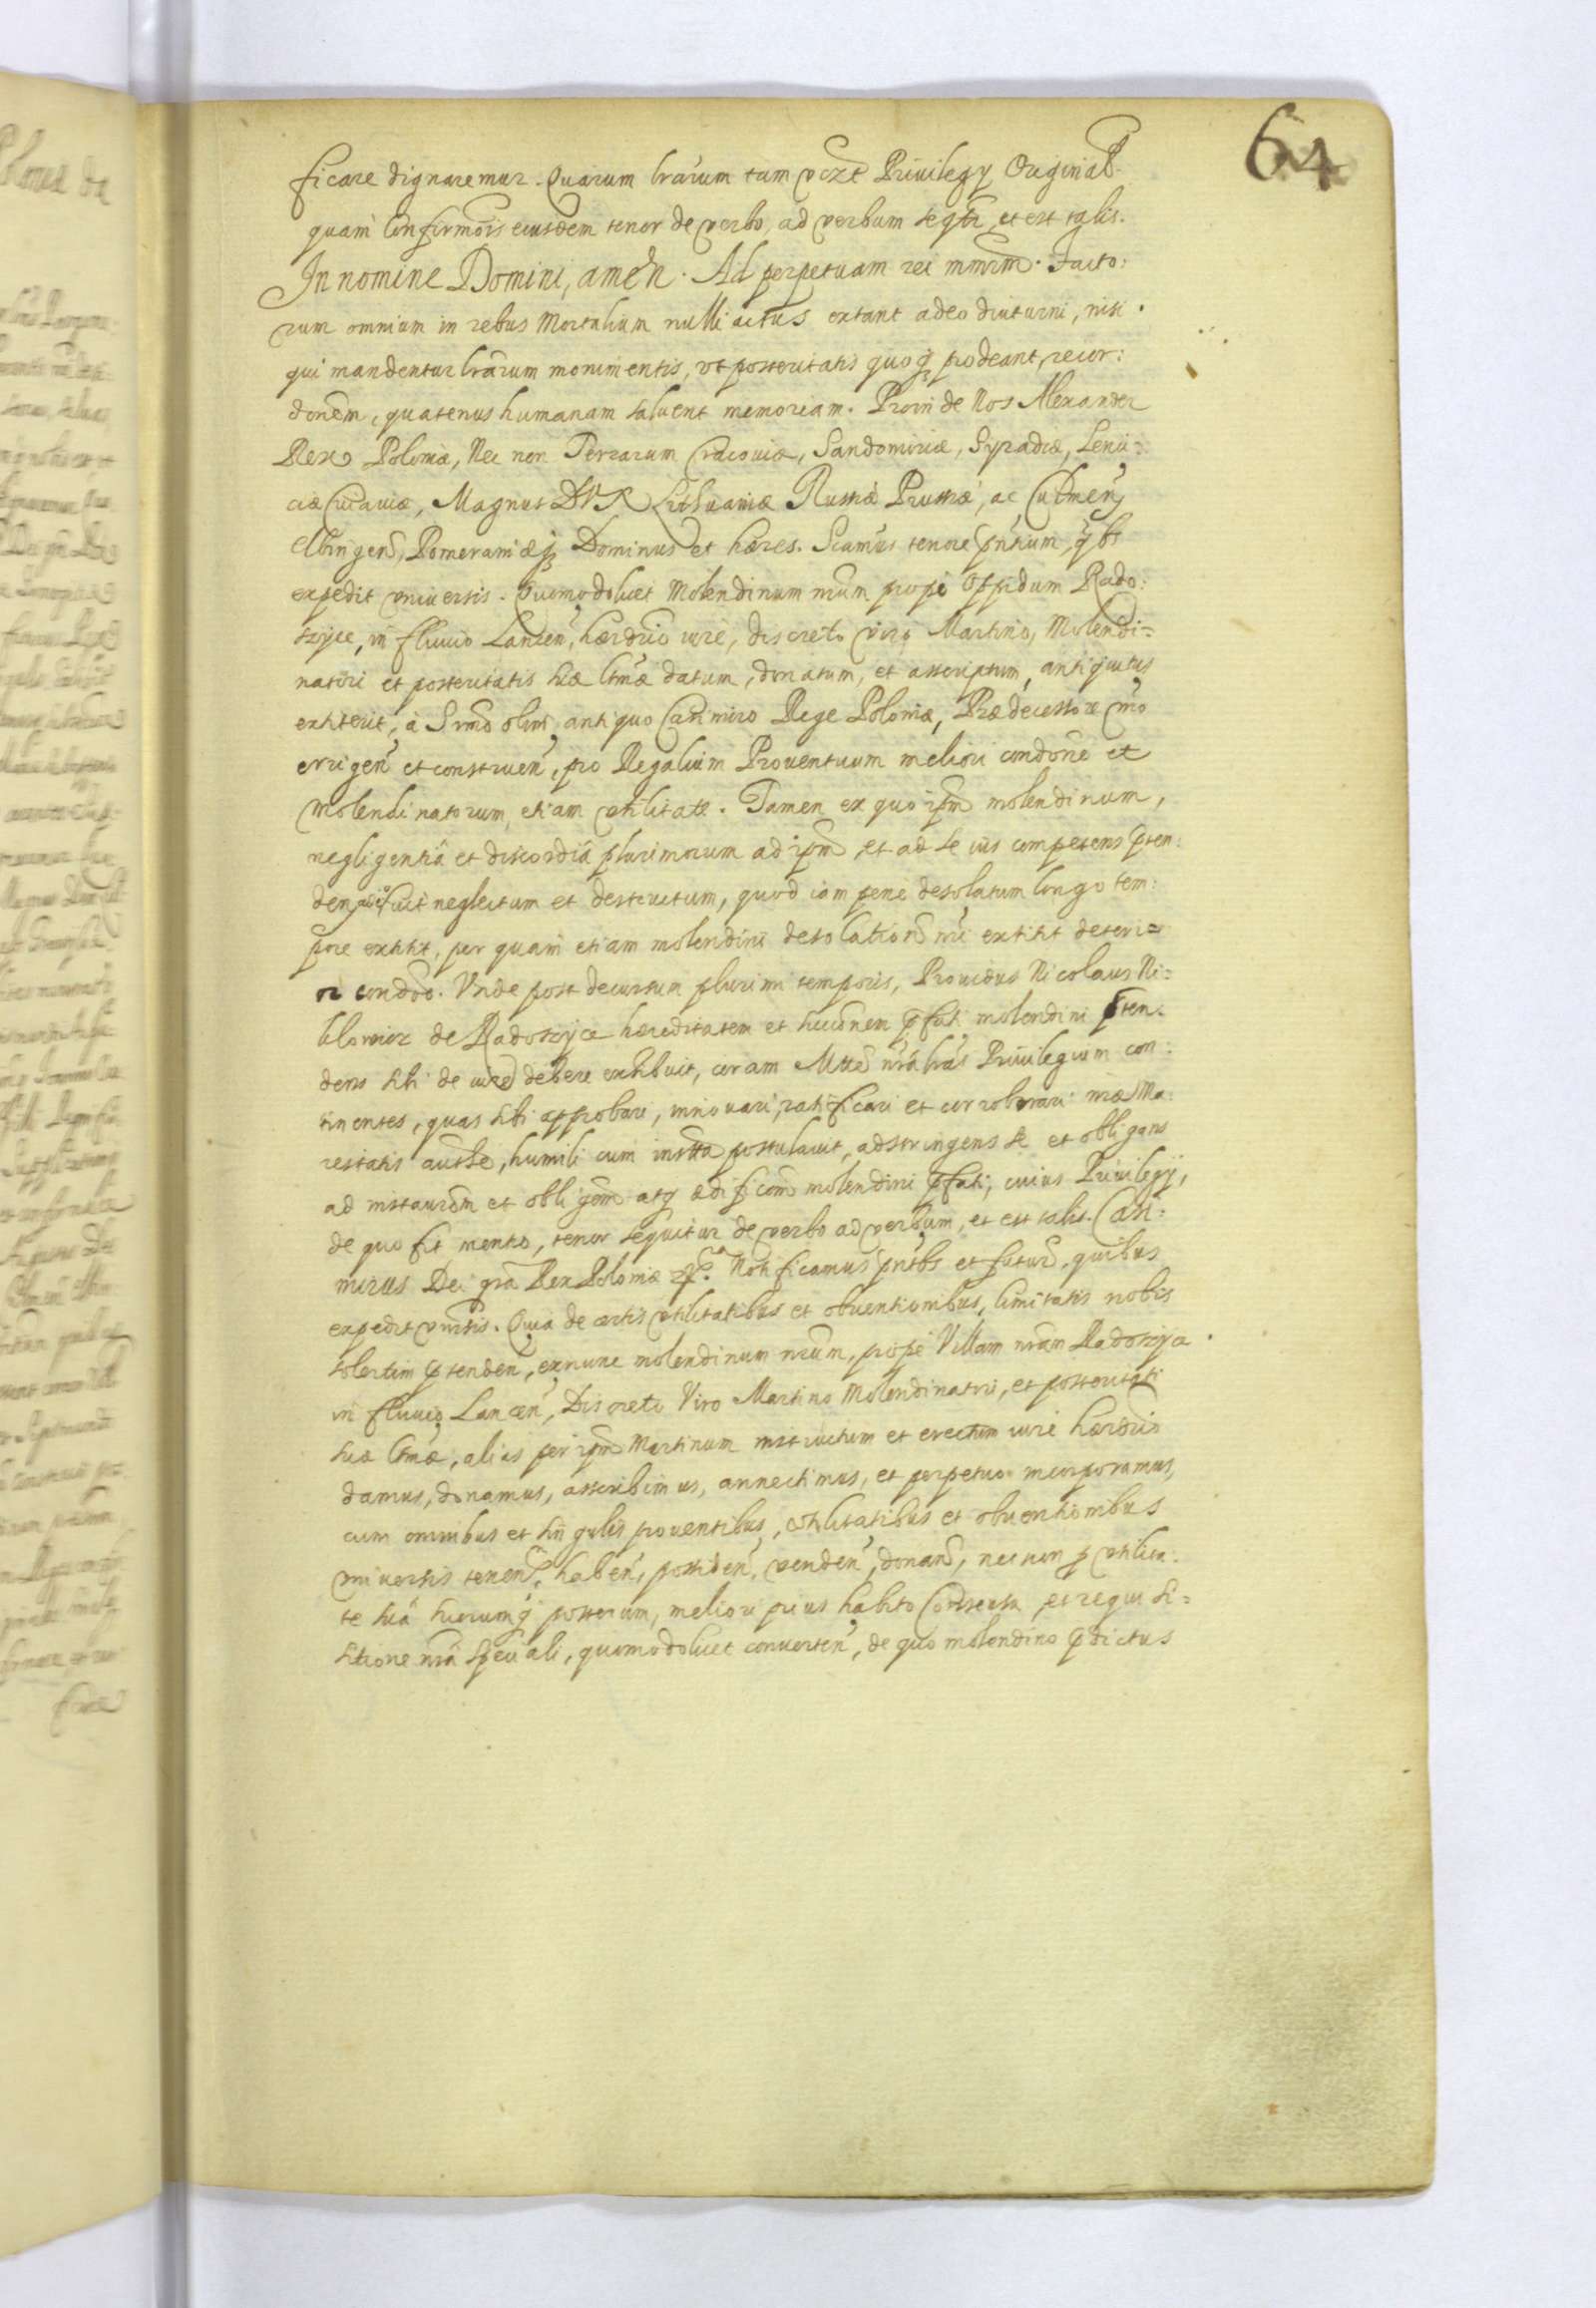 64
ficare dignaremur. Quarum lrarum tam vczt Privilegy Original
quam Confirmois eiusdem tenor de verbo, ad verbum seqtr et est talis.
In nomine Domini, amen. Ad perpetuam rei mmrm. Facto:
rum omnium in rebus Mortalium nulli actus extant adeo diuturni, nisi
qui mandentur lrarum monimentis, vt posteritatis quoq prodeant, recor:
donem, quatenus humanam salvent memoriam. Proinde Nos Alexander
Rex Poloniæ, Nec non Terrarum Cracoviæ, Sandomiriæ, Syradiæ, Lenci:
ciæ Cuiaviæ, Magnus DVX Lithvaniæ Russiæ Prussiæ, ac Culmen
Elbingen, Pomeraniæq Dominus et hæres. Sciamus tenore pntium, qbs
expedit vniversis. Quomodolicet Molendinum nrum prope Oppidum Rado:
szyce, in fluvio Lanzen, hærdrio iure, discreto viro Martino, Molendi=
natori et posteritatis suæ ltmæ datum, donatum, et asscriptum, antiquitus
extiterit, à Srmo olim, antiquo Casimiro Rege Poloniæ, Prædecessore nro
errigen et construen, pro Regalium Proventuum meliori condone et
Molendinatorum, etiam vtilitate. Tamen ex quo ipm molendinum,
negligentiâ et discordiâ plurimorum ad ipm, et ad se ius competens pten:
den fuit neglectum et destructum, quod iam pene desolatum longo tem:
pore extitit, per quam etiam molendini desolation nri extitit deteri=
or condo. Vnde post decursum plurimi temporis, Providus Nicolaus Ni=
klowicz de Radoszyce hæreditatem et succonem pfati molendini pten:
dens sibi de iure debere exhibuit, coram Mtte nra lras Privilegium con:
tinentes, quas sibi approbari, innovari, ratificari et corroborari nræ Ma:
iestatis authte, humili cum instta postulavit, adstringens se et obligans
ad instaurom et obligom atq ædificom molendini pfati, cuius Privilegij,
de quo fit mentio, tenor sequitur de verbo ad verbum, et est talis. Casi:
mirus Dei gra Rex Poloniæ etc. Notificamus pntbs et futur, quibus
expedit vnirsis. Quia de certis vtilitatibus et obventionibus, limitatis nobis
solertim ptenden, exnunc molendinum nrum, prope Villam nram Radoszyce
in fluvio Lancen, Discreto Viro Martino Molendinatri, et posteritati
suæ ltmæ, alias per ipm Martinum instructum et erectum iure hærdrio
damus, donamus, asscribimus, annectimus, et perpetuo incorporamus,
cum omnibus et singulis proventibus, vtilitatibus et obventionibus
vniversis tenen, haben, possiden, venden, donan, necnon p vtilita:
te suâ suorumq posterum, meliori prius habito Consensu et requisi=
sitione nrâ speciali, quomodolicet converten, de quo molendino pdictus